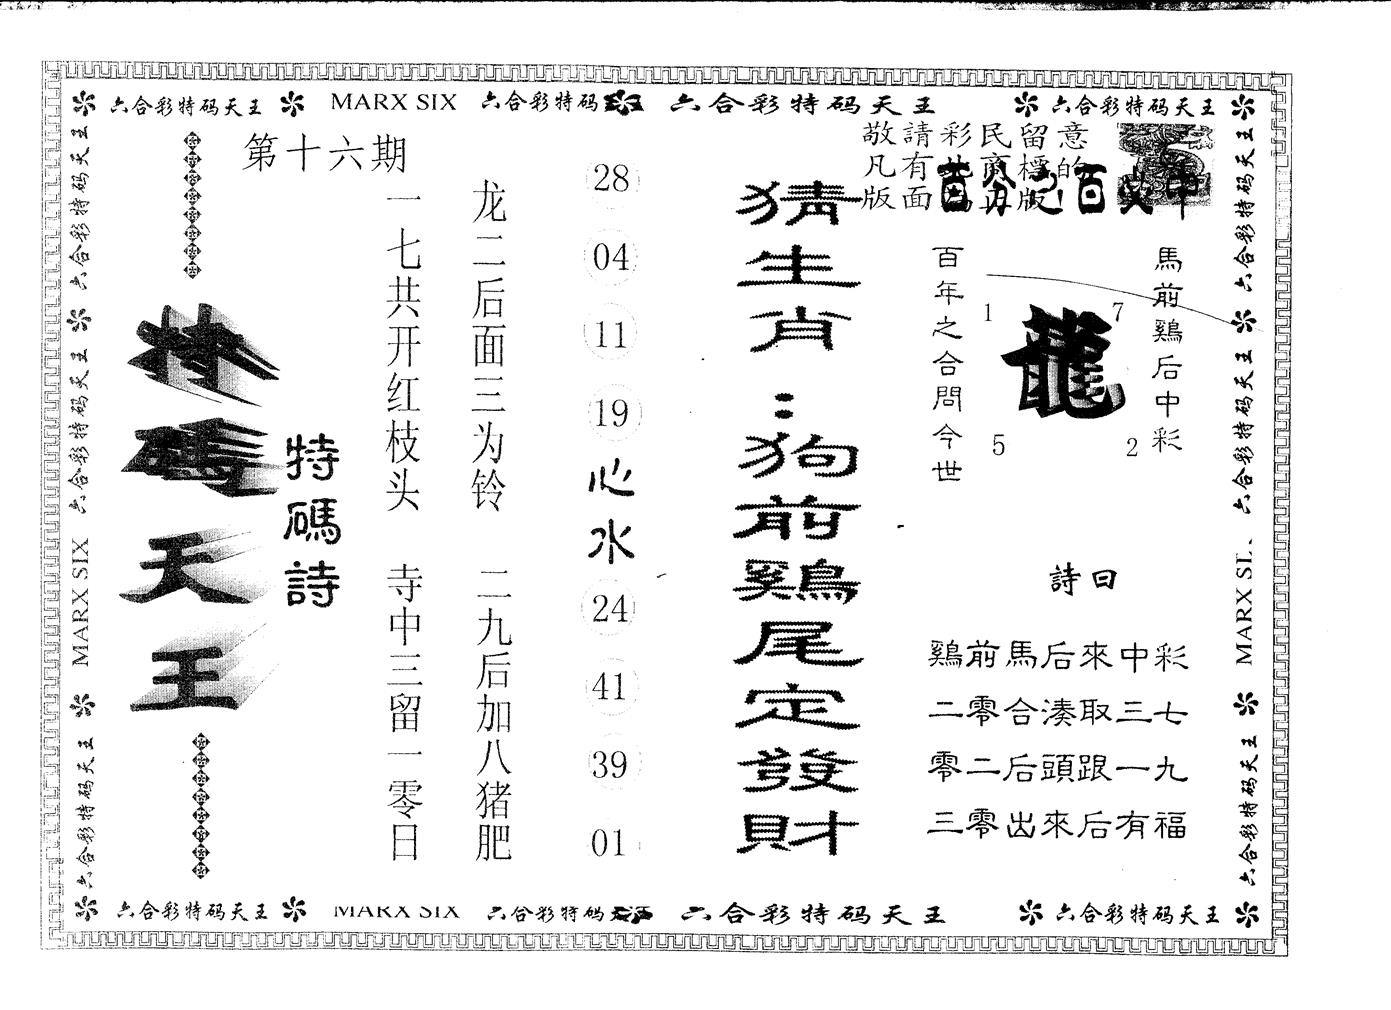 六合彩特码天王 MARX SIX 六合彩特码 六合彩特码天王 六合彩特码天王
第十六期
特碼天王
特碼詩
一七共开红枝头 寺中三留一零日
龙二后面三为铃 二九后加八猪肥
28
04
11
19
心水
24
41
39
01
猜生肖：狗前鷄尾定發財
敬請彩民留意
凡有
版面 版
百年之合問今世
1 7
龍
5 2
馬前鷄后中彩
詩曰
鷄前馬后來中彩
二零合湊取三七
零二后頭跟一九
三零出來后有福
六合彩特码天王 六合彩特码天王 MARX SIX 六合彩特码天王
六合彩特码天王 六合彩特码天王 MARX SI 六合彩特码天王
六合彩特码天王 MARX SIX 六合彩特码天 六合彩特码天王 六合彩特码天王